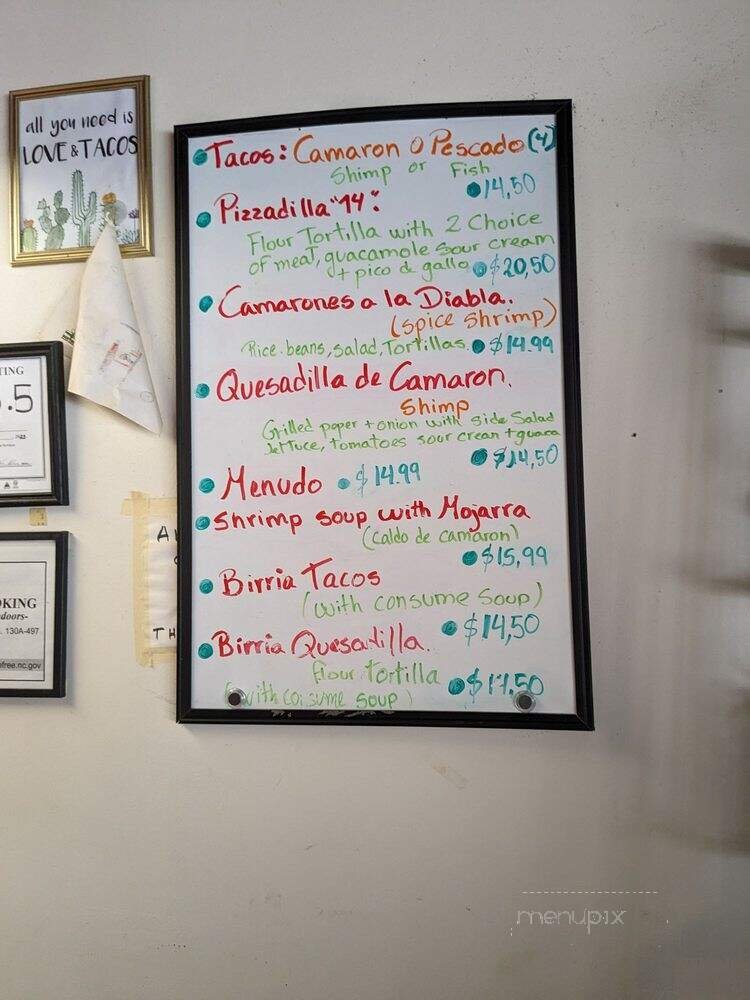 all you need is
LOVE & TACOS
TING
.5
OKING
doors-
. 130A-497
free.nc.gov
A
TH
Tacos: Camaron O Pescado (4)
Shimp or Fish
14,50
Pizzadilla "14":
Flour Tortilla with 2 Choice
of meat, guacamole sour cream
+ pico de gallo $20,50
Camarones a la Diabla.
(spice shrimp)
Rice.beans, salad, Tortillas. $14.99
Quesadilla de Camaron.
Shimp
Grilled peper + onion with side Salad
lettuce, tomatoes sour crean + guaca
$14,50
Menudo $14.99
Shrimp soup with Mojarra
(caldo de camaron)
$15,99
Birria Tacos
(with consume soup)
$14,50
Birria Quesadilla.
flour tortilla
$17.50
(with consume soup)
menupix